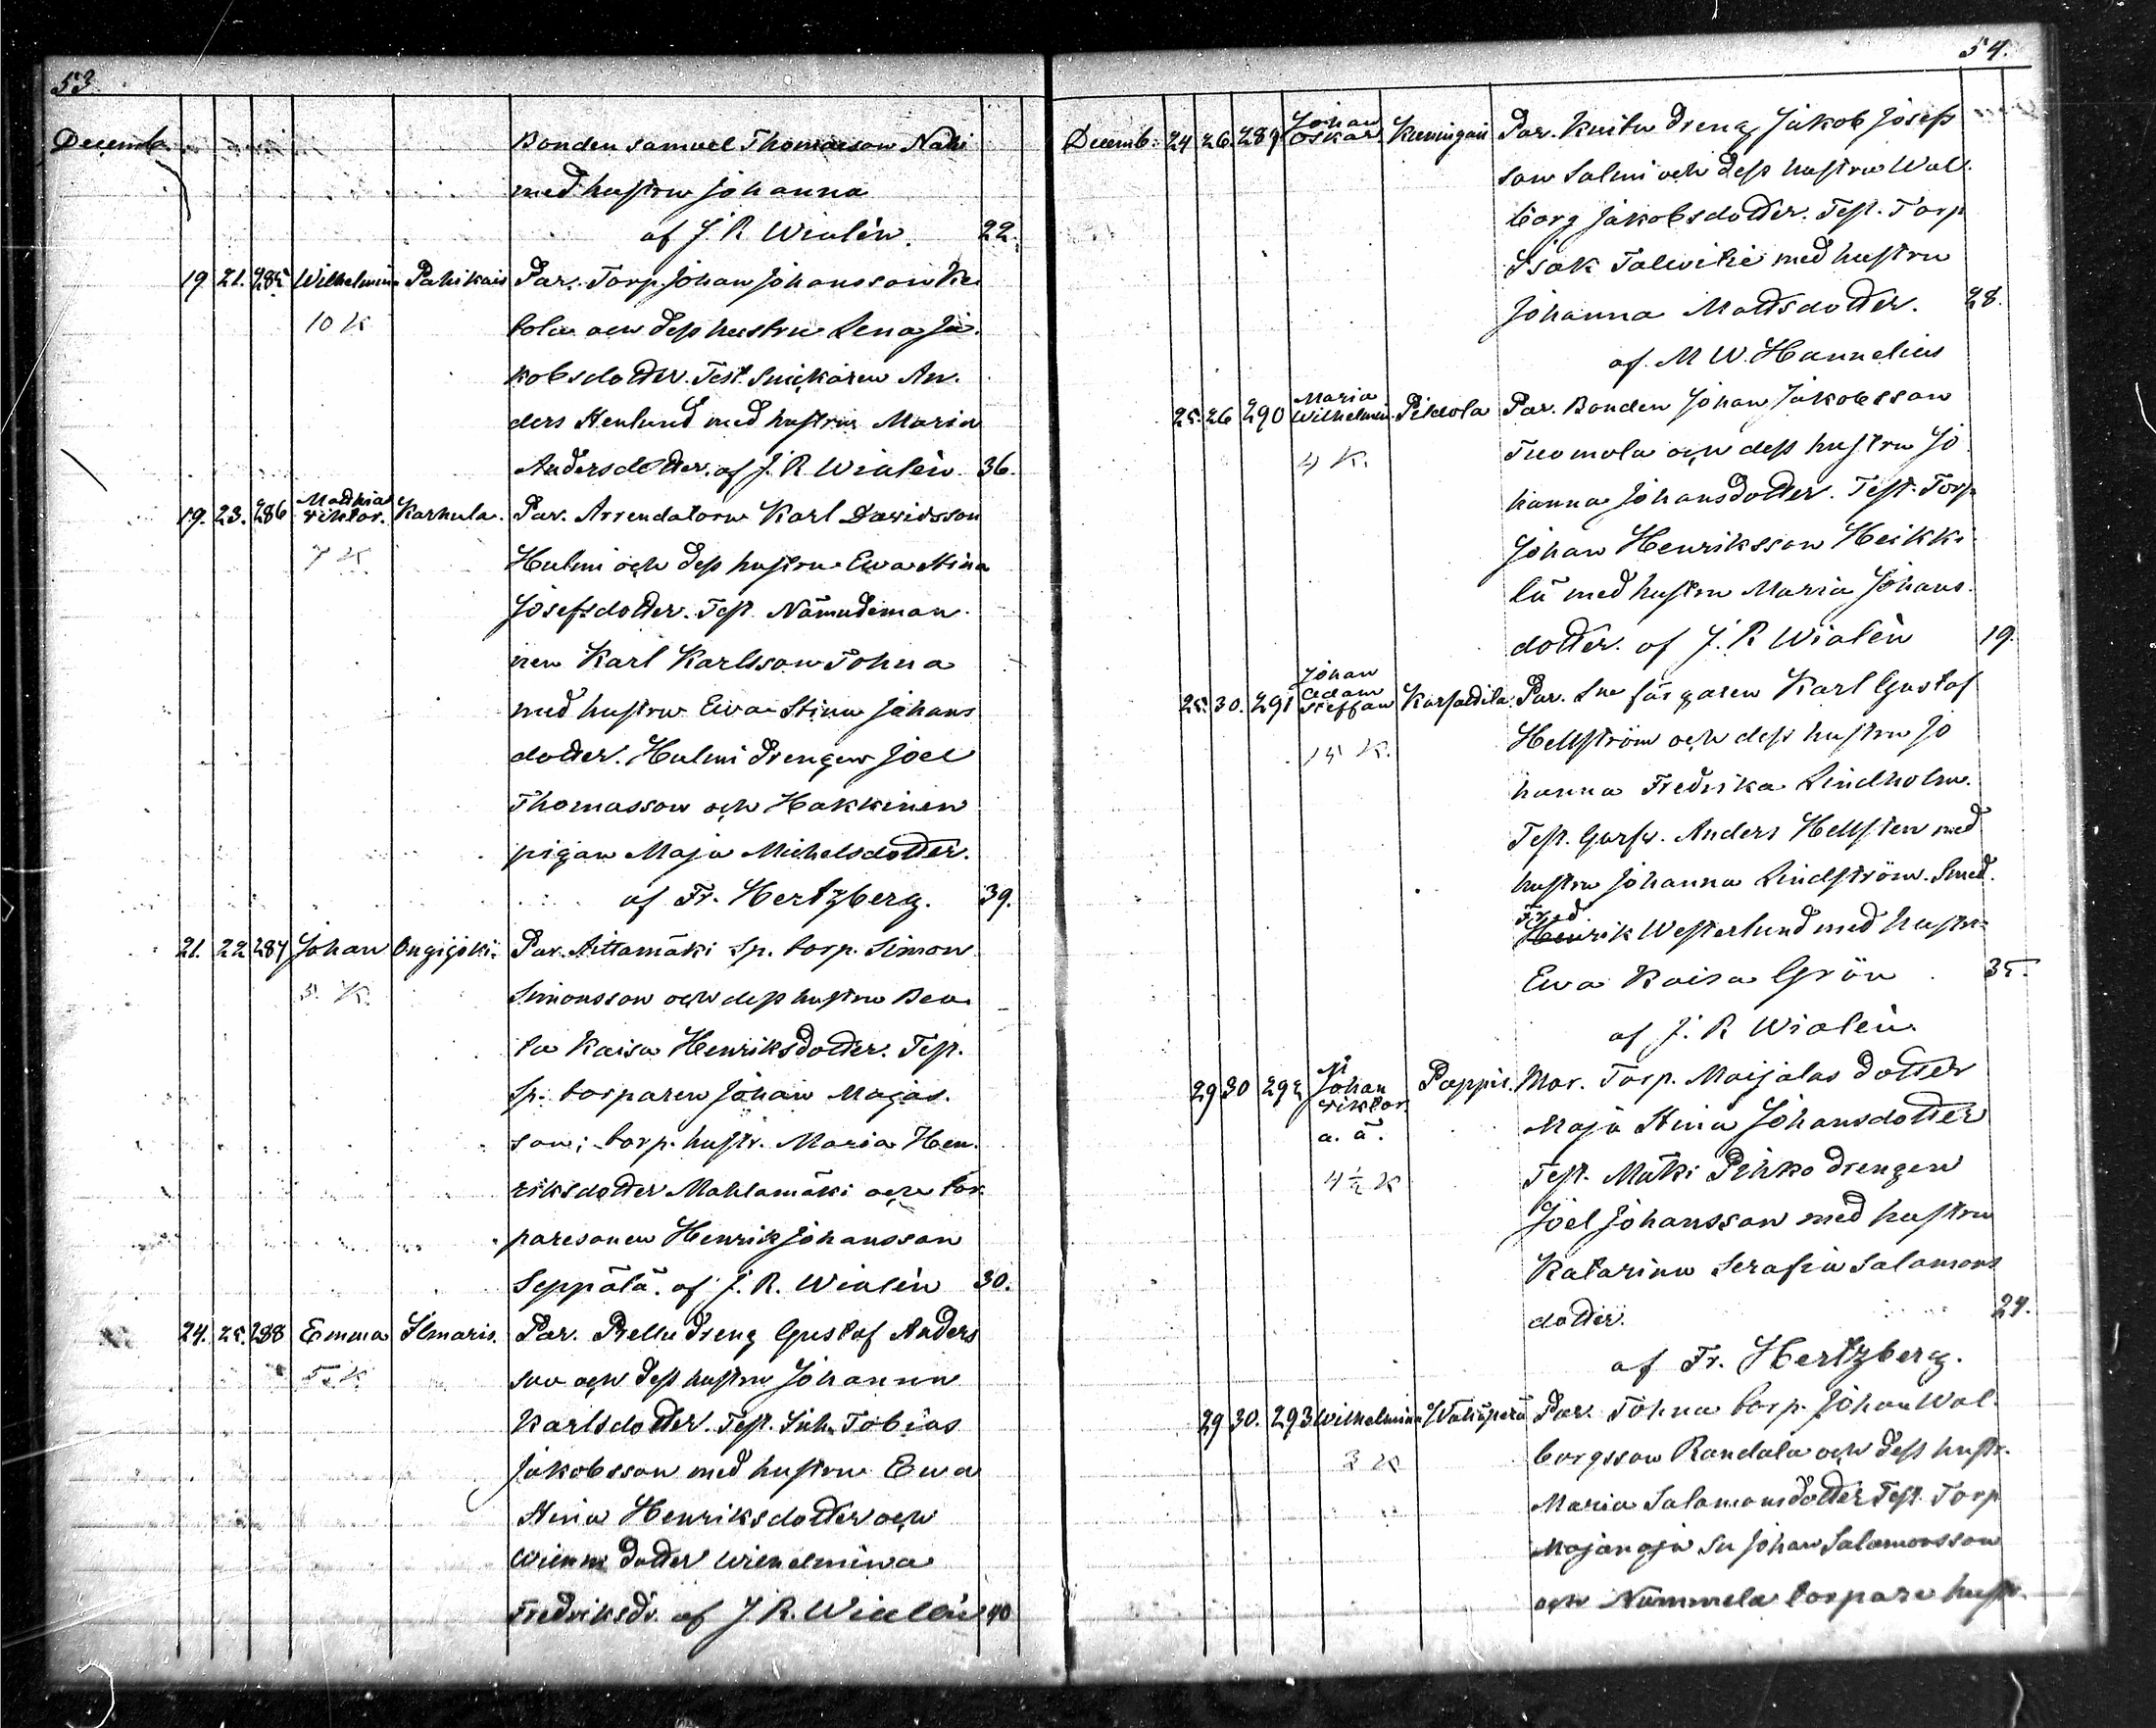 53.
Decemb.
Bonden Samuel Thomasson Nahi
med hustru Johanna
af J. R. Wialén. 22.
19 21. 285 Wilhelmin Pahikais Par. Torp. Johan Johansson Ke
10 K tola och dess hustru Lena Ja.
kobsdotter. Test. Snickaren An.
ders Henlund med hustru Maria
Andersdotter. af J. R. Wialén 36.
Mathias
19. 23. 286 Viktor. Karhula. Par. Arrendatorn Karl Davidsson
7 K Hulmi och dess hustru Ewa Stina
Josefsdotter. Test. Nämndeman
nen Karl Karlsson Tohna
med hustru Ewa Stina Johans
dotter. Hulmi drengen Joel
Thomasson och Hakkinen
pigan Maja Michelsdotter.
af Fr. Hertzberg. 39.
21. 22 287 Johan Ongijoki. Par. Aittamäki Sp. torp. Simon
5. K. Simonsson och dess hustru Bea
ta Kaisa Henriksdotter. Test.
Sp. torparen Johan Majas.
son; torp. hustr. Maria Hen.
riksdotter Mahlamäki och tor
paresonen Henrik Johansson
Seppälä. af J. R. Wialén 30.
24. 25. 288 Emma Ilmaris. Par. Prellu dreng Gustaf Anders
5. K son och dess hustru Johanna
Karlsdotter. Test. Inh. Tobias
Jakobsson med hustru Ewa
Stina Henriksdotter och
dotter Wilhelmina
Fredriksdr. af J R. Wialén 40
54.
Johan
Decemb: 24 26. 289 Oskar. Kuningais Par. Knitu dreng Jakob Josefs
son Salmi och dess hustru Wal.
borg Jakobsdotter. Test. Torp
Isak Talwitie med hustru
Johanna Mattsdotter. 28.
af M W. Hannelius
Maria
25. 26 290 Wilhelmin. Pildola Par. Bonden Johan Jakobsson
4 K. Tuomola och dess hustru Jo
hanna Johansdotter. Test. Torp
Johan Henriksson Heikki
lä med hustru Maria Johans.
dotter. af J. R Wialén 19.
Johan
Adam
25. 30. 291 Steffan Karsattila Par. färgaren Karl Gustaf
15 K. Hellström och dess hustru Jo
hanna Fredrika Lindholm.
Test. Garfv. Anders Hellsten med
hustru Johanna Lindström. Smed.
Fred.
Henrik Westerlund med hustru
Ewa Kaisa Grön 35.
af J. R Wialén.
29 30 292 Johan Pappis. Mor. Torp. Maijalas dotter
Viktor. Maja Stina Johansdotter
a. ä.
4 ½ K Test. Mäki Pihko drengen
Joel Johansson med hustru
Katarina Serafia Salamons
dotter. 24.
af Fr. Hertzberg.
29 30. 293 Wilhelmina Wahäperä Par. Tohna torp. Johan Wal.
3 K borgsson Randala och dess hustr.
Maria Salamonsdotter Test. Torp
Majanoja Johan Salamonsson
och Nummela torpare hustr.